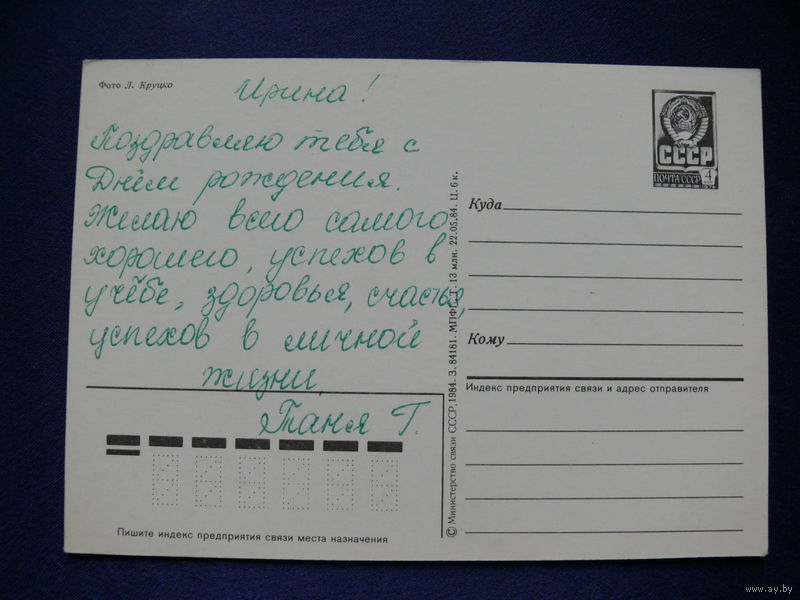 Фото Л. Круцко
Ирина!
Поздравляю тебя с
Днём рождения.
Желаю всего самого
хорошего, успехов в
учёбе, здоровья, счастья,
успехов в личной
жизни.
Таня Г.
Пишите индекс предприятия связи места назначения
© Министерство связи СССР, 1984. З. 84181. МПФГ. Т. 13 млн. 22.05.84. Ц. 6 к.
СССР
ПОЧТА СССР 4
Куда
Кому
Индекс предприятия связи и адрес отправителя
www.ay.by